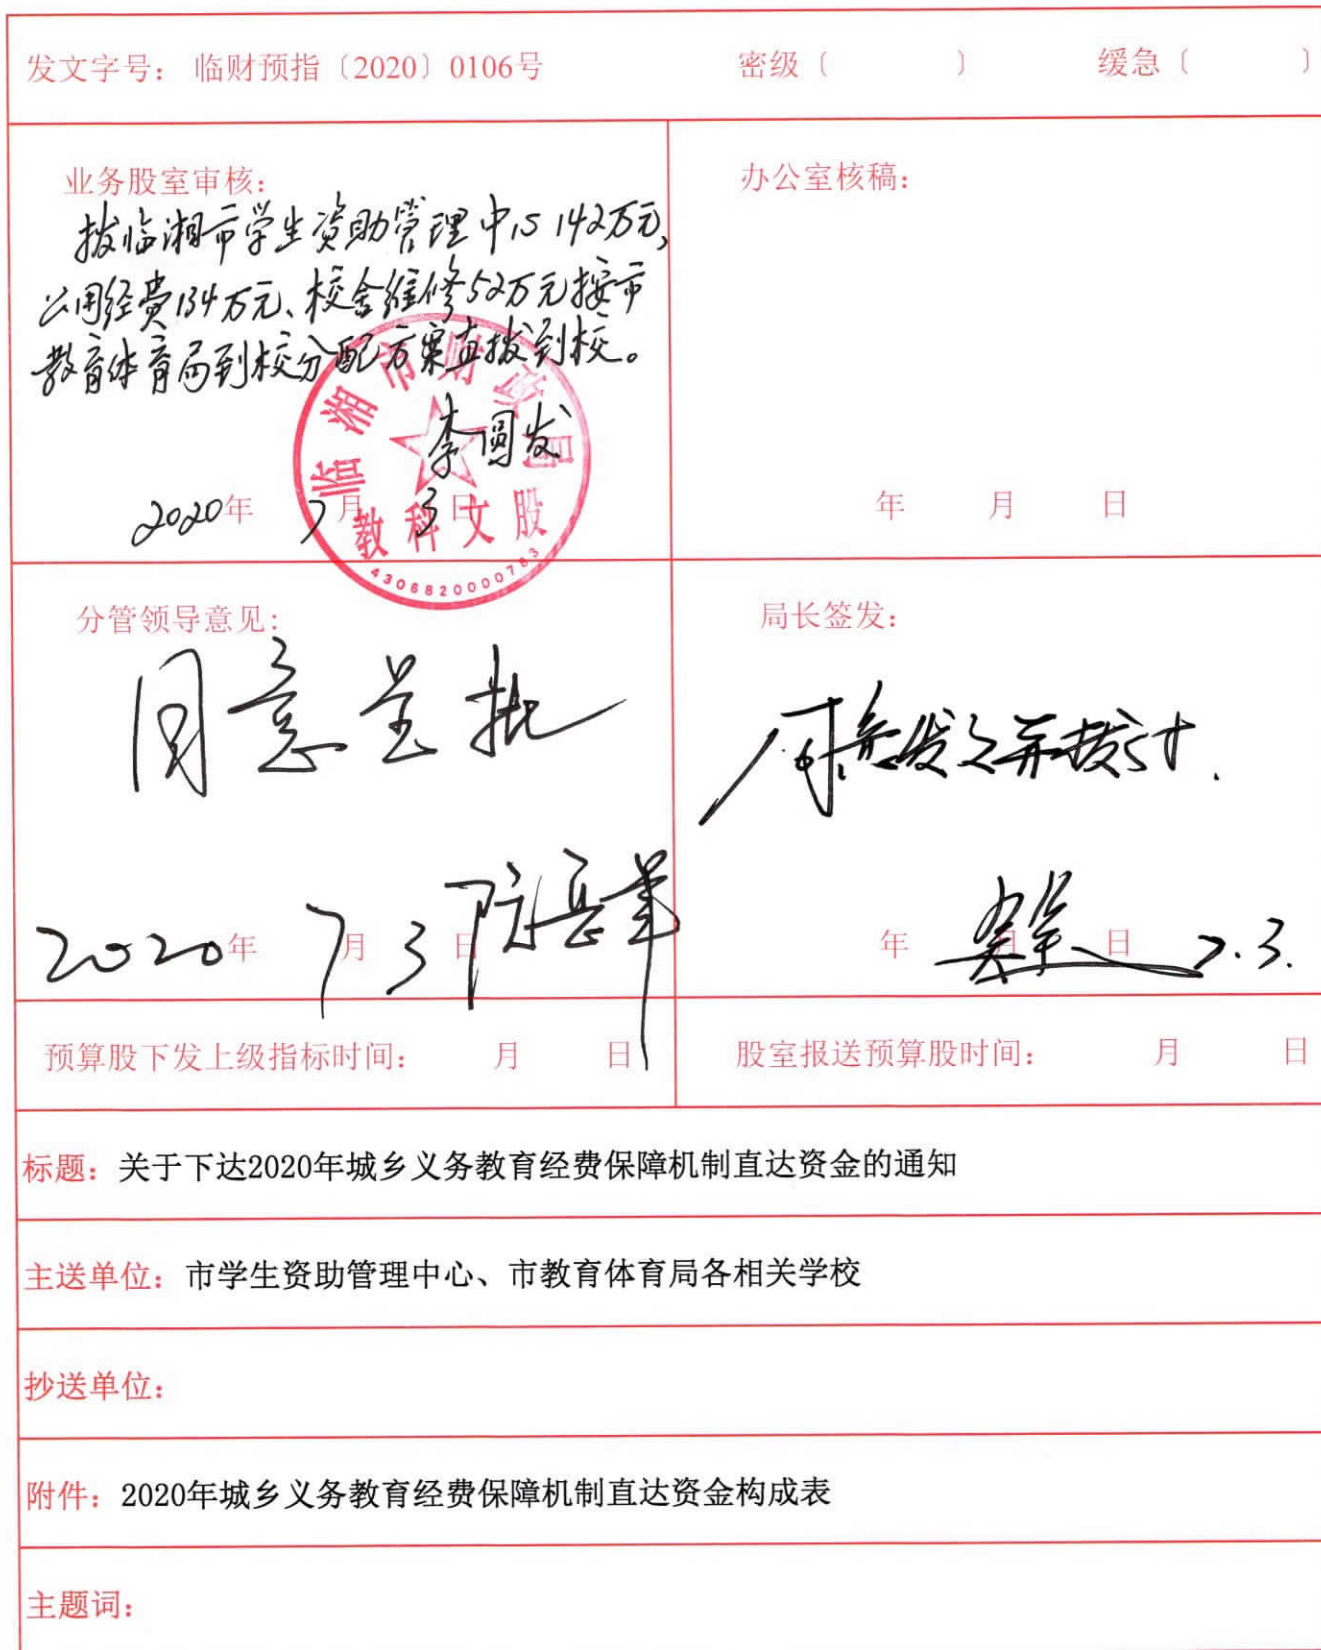 发文字号： 临财预指〔2020〕0106号 密级〔 〕 缓急〔 〕
业务股室审核：
拨临湘市学生资助管理中心142万元，
公用经费134万元、校舍维修52万元按市
教育体育局到校分配方案直拨到校。
李圆发
2020年 7月 3日
临湘市财政局
教科文股
4306820000783
办公室核稿：
年 月 日
分管领导意见：
同意呈批
2020年 7月 3日
局长签发：
同意发文并拨付.
年 月 日 7.3.
预算股下发上级指标时间： 月 日
股室报送预算股时间： 月 日
标题：关于下达2020年城乡义务教育经费保障机制直达资金的通知
主送单位：市学生资助管理中心、市教育体育局各相关学校
抄送单位：
附件：2020年城乡义务教育经费保障机制直达资金构成表
主题词：